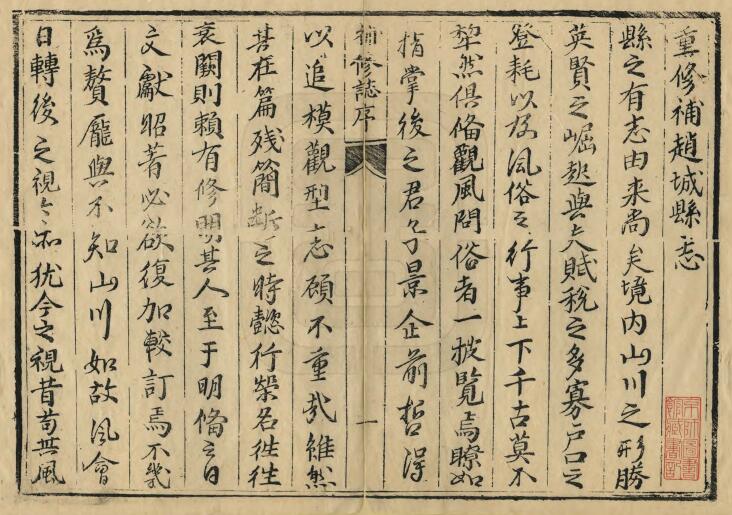 重修補趙城縣志
縣之有志由来尚矣境内山川之形勝
英賢之崛起與夫賦税之多寡戸口之
登耗以及風俗之行事上下千古莫不
犂然俱偹觀風問俗者一披覧焉瞭如
指掌後之君子景企前哲得
補修誌序
一
以追模觀型志顧不重哉雖然
其在篇残簡斷之時懿行榮名徃徃
衰闕則賴有修明其人至于明偹之日
文獻昭著必欲復加較訂焉不幾
爲贅龐與不知山川如故風會
日轉後之視今亦犹今之視昔苟其風